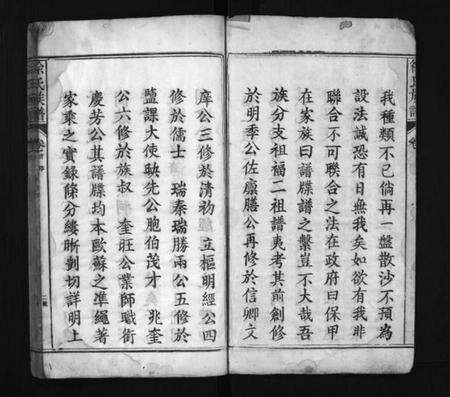 我種類不已倘再一盤散沙不預為
設法誠恐有日無我矣如欲有我非
聯合不可聯合之法在政府曰保甲
在家族曰譜牒譜之繫豈不大哉吾
族分支祖福二祖譜夷考其前創修
於明季公佐廪膳公再修於信卿文
庠公三修於清初 立樞明經公四
修於儒士 瑞泰瑞勝兩公五修於
監課大使映先公胞伯茂才 兆奎
公六修於族叔 奎旺公業師職銜
慶芳公其譜牒均本歐蘇之準繩著
家乘之實錄條分縷晰剴切詳明上
徐氏族譜
卷